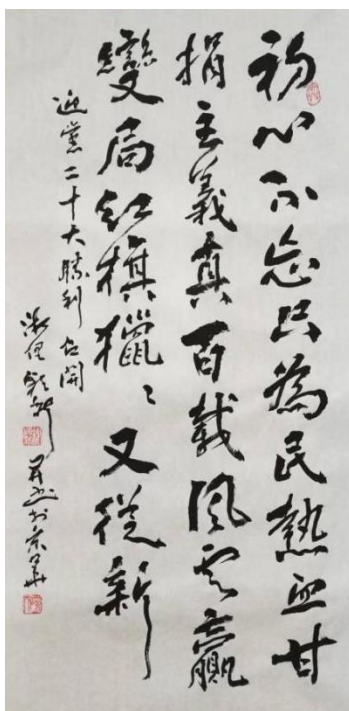 初心不忘只為民熱血甘
捐主義真百載風雲贏
變局紅旗獵〻又從新
迎黨二十大勝利召開
並書於京華